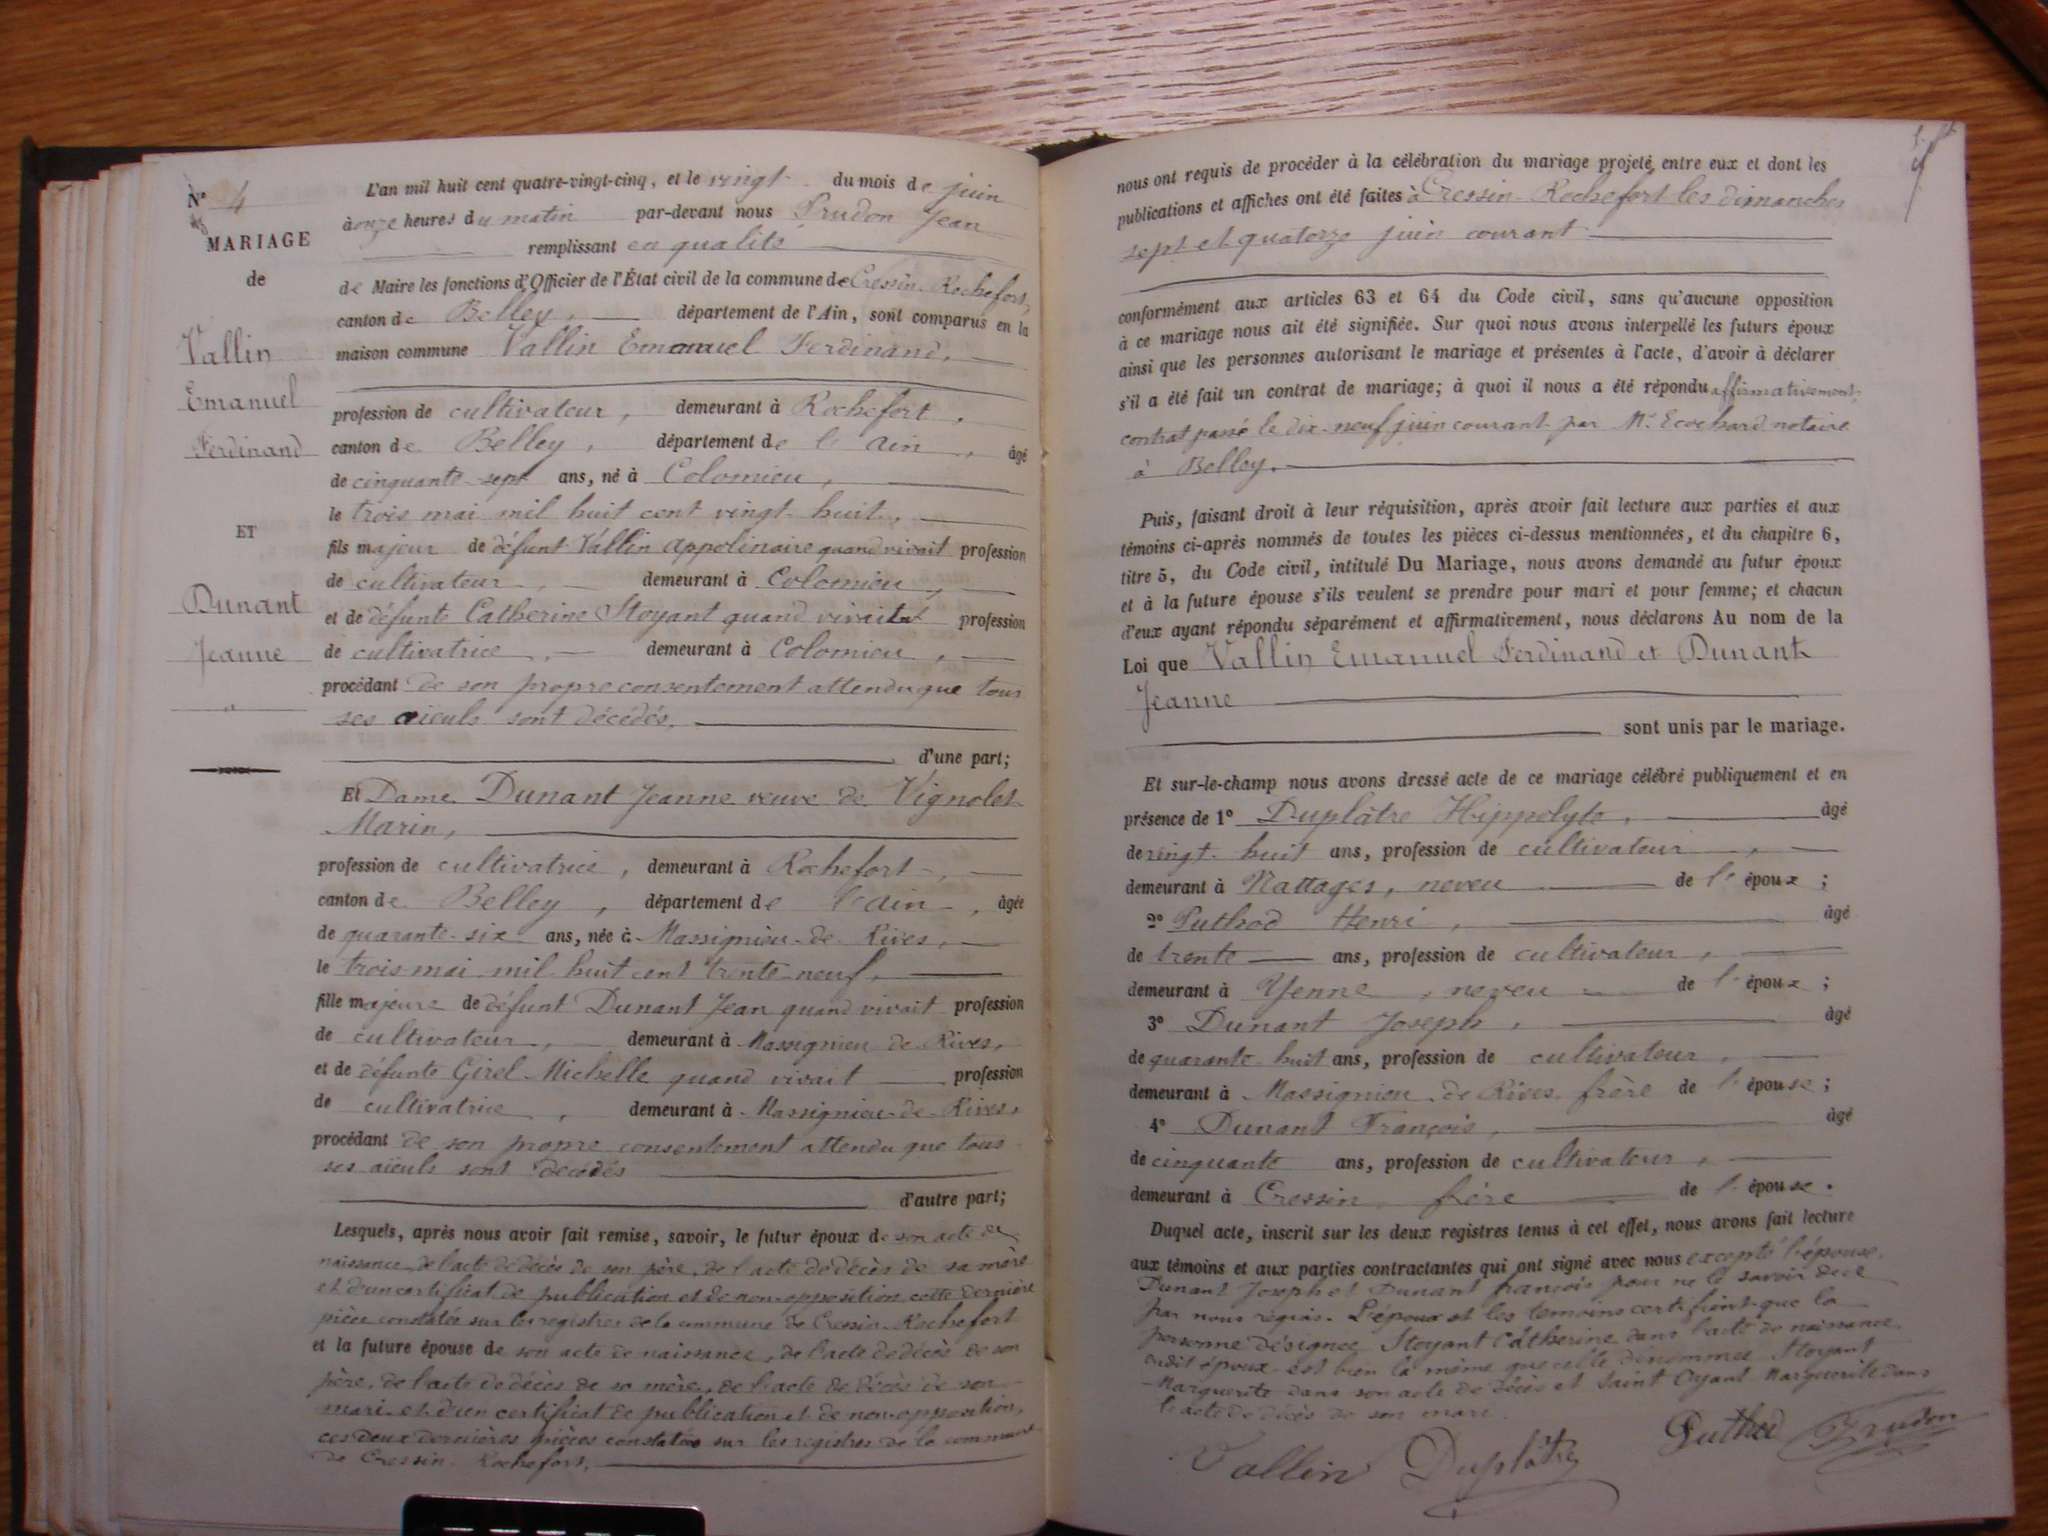 N° 4
MARIAGE
de
Vallin
Emanuel
Ferdinand
ET
Dunant
Jeanne
L'an mil huit cent quatre-vingt-cinq, et le vingt du mois de juin
à onze heures du matin par-devant nous Prudon Jean
remplissant en qualité
de Maire les fonctions d'Officier de l'État civil de la commune de Cressin-Rochefort,
canton de Belley, département de l'Ain, sont comparus en la
maison commune Vallin Emanuel Ferdinand,
profession de cultivateur, demeurant à Rochefort,
canton de Belley, département de l'ain, âgé
de cinquante-sept ans, né à Colomieu,
le trois mai mil huit cent vingt-huit,
fils majeur de défunt Vallin Appolinaire quand vivait profession
de cultivateur demeurant à Colomieu,
et de défunte Catherine Stoyant quand vivait profession
de cultivatrice, demeurant à Colomieu,
procédant de son propre consentement attendu que tous
ses aïeuls sont décédés.
d'une part;
Et Dame Dunant Jeanne veuve de Vignolet
Marin,
profession de cultivatrice, demeurant à Rochefort,
canton de Belley, département de l'ain, âgée
de quarante-six ans, née à Massignieu-de-Rives,
le trois mai mil huit cent trente-neuf,
fille majeure de défunt Dunant Jean quand vivait profession
de cultivateur, demeurant à Massignieu de Rives,
et de défunte Girel Michelle quand vivait profession
de cultivatrice, demeurant à Massignieu-de-Rives,
procédant de son propre consentement attendu que tous
ses aïeuls sont décédés
d'autre part;
Lesquels, après nous avoir fait remise, savoir, le futur époux de son acte de
naissance, de l'acte de décès de son père, de l'acte de décès de sa mère
et d'un certificat de publication et de non-opposition cette dernière
pièce constatée sur les registres de la commune de Cressin-Rochefort
et la future épouse de son acte de naissance, de l'acte de décès de son
père, de l'acte de décès de sa mère, de l'acte de décès de son
mari et d'un certificat de publication et de non-opposition,
ces deux dernières pièces constatées sur les registres de la commune
de Cressin-Rochefort.
nous ont requis de procéder à la célébration du mariage projeté entre eux et dont les
publications et affiches ont été faites à Cressin-Rochefort les dimanches
sept et quatorze juin courant
conformément aux articles 63 et 64 du Code civil, sans qu'aucune opposition
à ce mariage nous ait été signifiée. Sur quoi nous avons interpellé les futurs époux
ainsi que les personnes autorisant le mariage et présentes à l'acte, d'avoir à déclarer
s'il a été fait un contrat de mariage; à quoi il nous a été répondu affirmativement,
contrat passé le dix-neuf juin courant par Mr Ecochard notaire
à Belley.
Puis, faisant droit à leur réquisition, après avoir fait lecture aux parties et aux
témoins ci-après nommés de toutes les pièces ci-dessus mentionnées, et du chapitre 6,
titre 5, du Code civil, intitulé Du Mariage, nous avons demandé au futur époux
et à la future épouse s'ils veulent se prendre pour mari et pour femme; et chacun
d'eux ayant répondu séparément et affirmativement, nous déclarons Au nom de la
Loi que Vallin Emanuel Ferdinand et Dunant
Jeanne
sont unis par le mariage.
Et sur-le-champ nous avons dressé acte de ce mariage célébré publiquement et en
présence de 1° Duplâtre Hippolyte, âgé
de vingt-huit ans, profession de cultivateur,
demeurant à Nattages, neveu de l'époux;
2° Puthod Henri, âgé
de trente ans, profession de cultivateur,
demeurant à Yenne, neveu de l'époux;
3° Dunant Joseph, âgé
de quarante-huit ans, profession de cultivateur,
demeurant à Massignieu de Rives frère de l'épouse;
4° Dunant François, âgé
de cinquante ans, profession de cultivateur,
demeurant à Cressin, frère de l'épouse.
Duquel acte, inscrit sur les deux registres tenus à cet effet, nous avons fait lecture
aux témoins et aux parties contractantes qui ont signé avec nous excepté l'épouse,
Dunant Joseph et Dunant François pour ne le savoir de ce
par nous requis. L'époux et les témoins certifient que la
personne désignée Stoyant Catherine dans l'acte de naissance
dudit époux est bien la même que celle dénommée Stoyant
Marguerite dans son acte de décès et Saint Oyant Marguerite dans
l'acte de décès de son mari.
Vallin Duplâtre Puthod Prudon